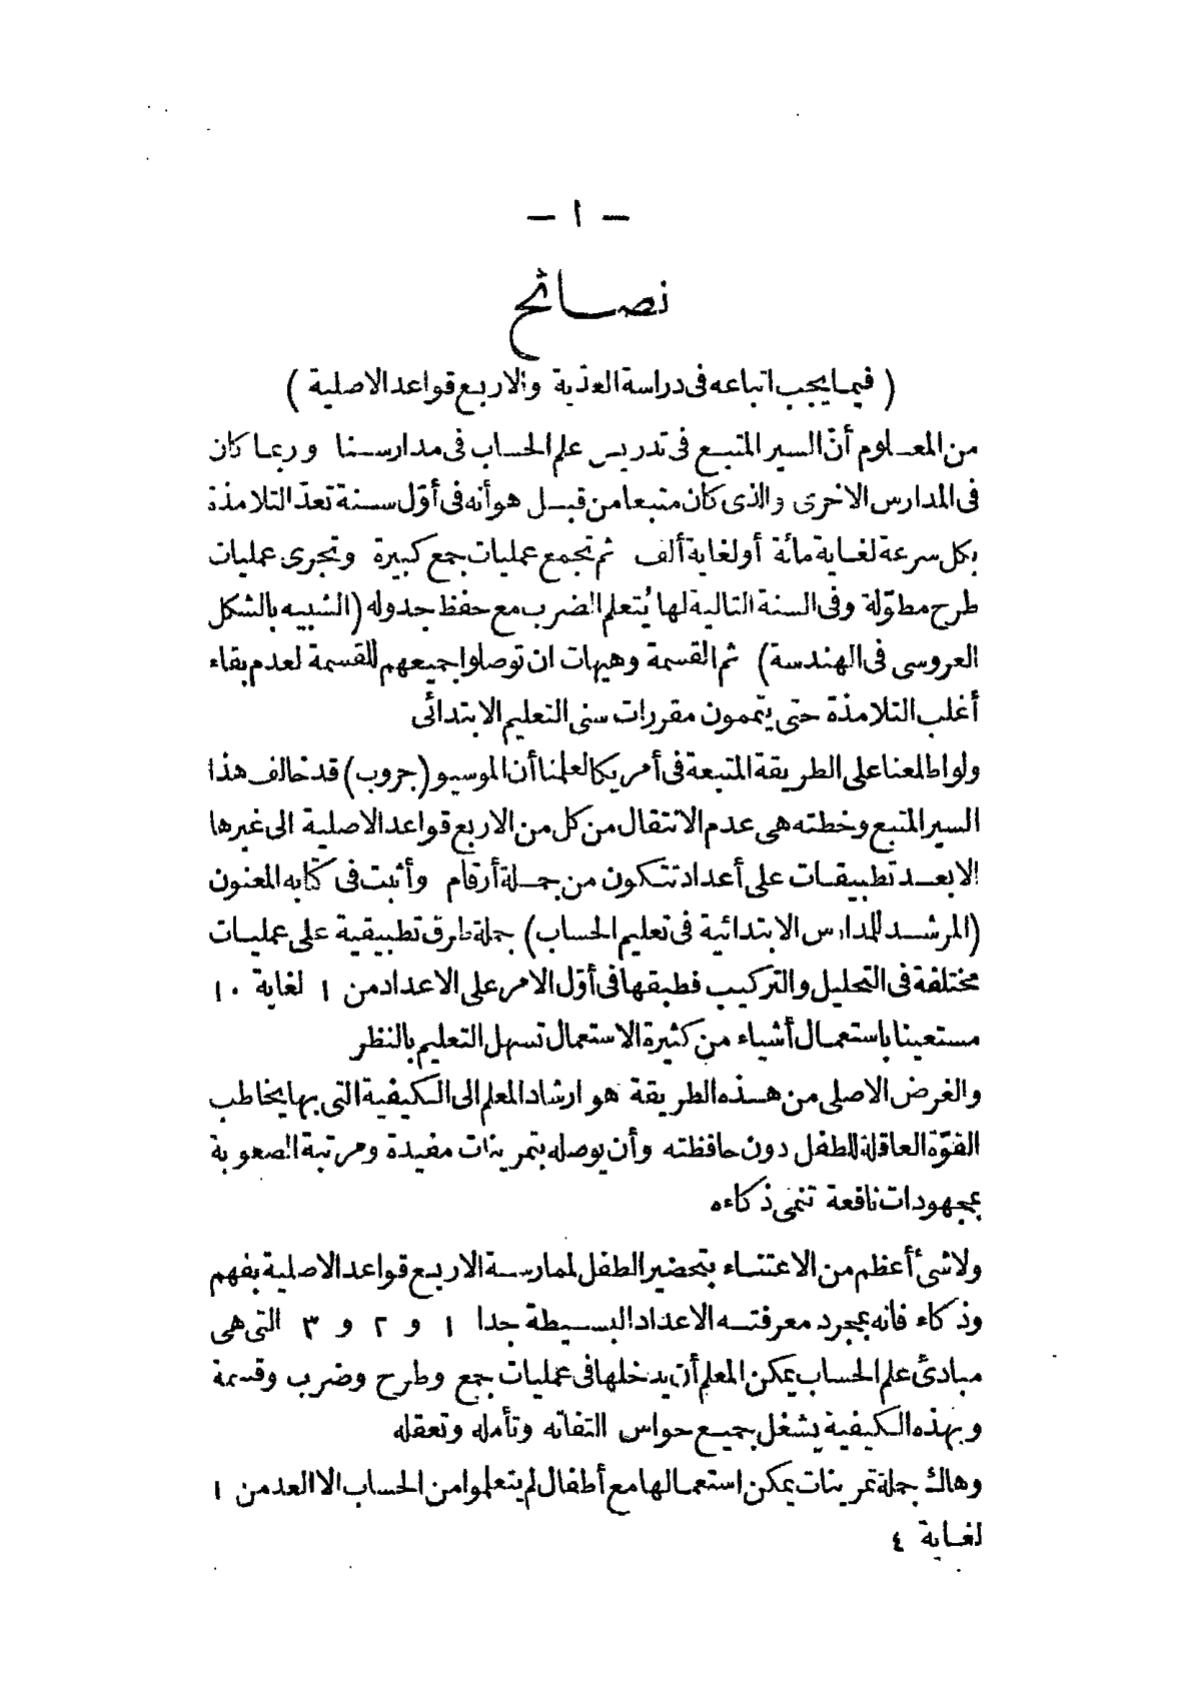 — ١ —
نصائح
( فيما يجب اتباعه فى دراسة العدّية والاربع قواعد الاصلية )
من المعلوم أنّ السير المتبع فى تدريس علم الحساب فى مدارسنا وربما كان
فى المدارس الاخرى والذى كان متبعا من قبل هو أنه فى أوّل سنة تعدّ التلامذة
بكل سرعة لغاية مائة أو لغاية ألف ثم تجمع عمليات جمع كبيرة وتجرى عمليات
طرح مطوّلة وفى السنة التالية لها يُتعلم الضرب مع حفظ جدوله (الشبيه بالشكل
العروسى فى الهندسة) ثم القسمة وهيهات ان توصلوا جميعهم للقسمة لعدم بقاء
أغلب التلامذة حتى يتممون مقررات سنى التعليم الابتدائى
ولو اطلعنا على الطريقة المتبعة فى أمريكا لعلمنا أن الموسيو (جروب) قد خالف هذا
السير المتبع وخطته هى عدم الانتقال من كل من الاربع قواعد الاصلية الى غيرها
الا بعد تطبيقات على أعداد تتكون من جملة أرقام وأثبت فى كتابه المعنون
(المرشد للمدارس الابتدائية فى تعليم الحساب) جملة طرق تطبيقية على عمليات
مختلفة فى التحليل والتركيب فطبقها فى أوّل الامر على الاعداد من ١ لغاية ١٠
مستعينا باستعمال أشياء من كثيرة الاستعمال تسهل التعليم بالنظر
والغرض الاصلى من هذه الطريقة هو ارشاد المعلم الى الكيفية التى بها يخاطب
القوّة العاقلة للطفل دون حافظته وأن يوصله بتمرينات مفيدة ومرتبة الصعوبة
بمجهودات نافعة تنمى ذكاءه
ولا شئ أعظم من الاعتناء بتحضير الطفل لممارسة الاربع قواعد الاصلية بفهم
وذكاء فانه بمجرد معرفته الاعداد البسيطة جدا ١ و ٢ و ٣ التى هى
مبادئ علم الحساب يمكن المعلم أن يدخلها فى عمليات جمع وطرح وضرب وقسمة
وبهذه الكيفية يشغل جميع حواس التفاته وتأمله وتعقله
وهاك جملة تمرينات يمكن استعمالها مع أطفال لم يتعلموا من الحساب الا العد من ١
لغاية ٤